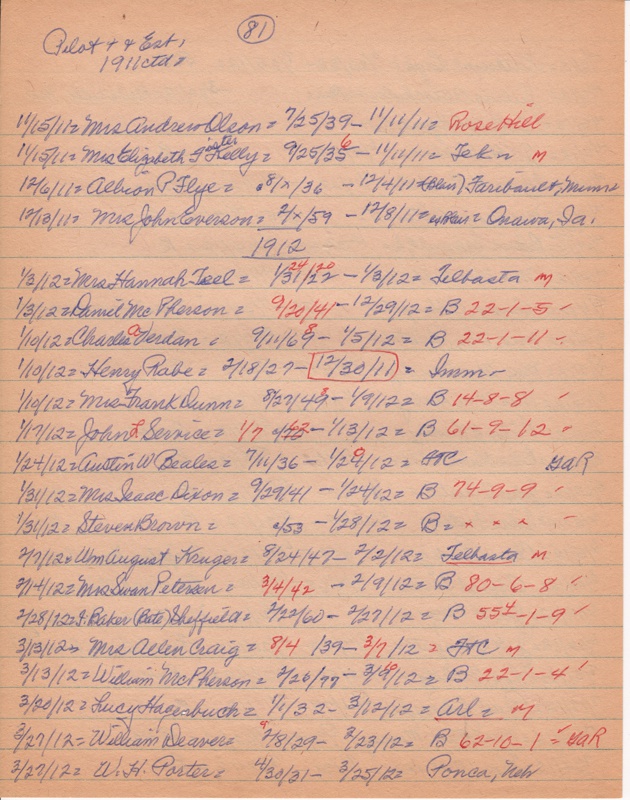 81
Pilot + & Est.
1911 ctd =
11/15/11 = Mrs Andrew Olson = 7/25/39 - 11/11/11 = Rose Hill
11/15/11 = Mrs Elizabeth Finster Kelly = 9/25/356 - 11/11/11 = Tek = m
12/6/11 = Albion P Flye = c8/x/36 - 12/4/11 = (Blair) Faribault, Minn =
12/13/11 = Mrs John Everson = 2/x/59 - 12/8/11 = = Onawa, Ia.
1912
1/3/12 = Mrs Hannah Isel = 1/31/22 24/20 - 1/3/12 = Telbasta m
1/3/12 = Daniel McPherson = 9/20/41 - 12/29/12 = B 22-1-5 -
1/10/12 = Charles Verdan = 9/11/698 - 1/5/12 = B 22-1-11 -
1/10/12 = Henry Rabe = 2/18/27 - 12/30/11 = Imm -
1/10/12 = Mrs Frank Dunn = 8/27/493 - 1/9/12 = B 14-8-8 /
1/17/12 = John L Service = 1/7 62 - 1/13/12 = B 61-9-12 -
1/24/12 = Austin W Beales = 7/11/36 - 1/20/12 = FtC GaR
1/31/12 = Mrs Isaac Dixon = 9/29/41 - 1/24/12 = B 74-9-9 /
1/31/12 = Steven Brown = c/53 - 1/28/12 = B = x x x -
2/7/12 = Wm August Kruger = 8/24/47 - 2/2/12 = Telbasta m
2/14/12 = Mrs Swan Petersen = 3/4/42 - 2/9/12 = B 80-6-8 /
2/28/12 = I. Baker (Bate) Sheffield = 2/22/60 - 2/27/12 = B 55½-1-9 /
3/13/12 = Mrs Allen Craig = 8/4/39 - 3/7/12 = FtC m
3/13/12 = William McPherson = 2/26/77 - 3/9/12 = B 22-1-4 /
3/20/12 = Lucy Hagenbuch = 1/1/32 - 3/12/12 = Arl = m
3/27/12 = William Deaver = 2/8/29 - 3/23/12 = B 62-10-1 = GaR
3/27/12 = W. H. Porter = 4/30/31 - 3/25/12 = Ponca, Neb